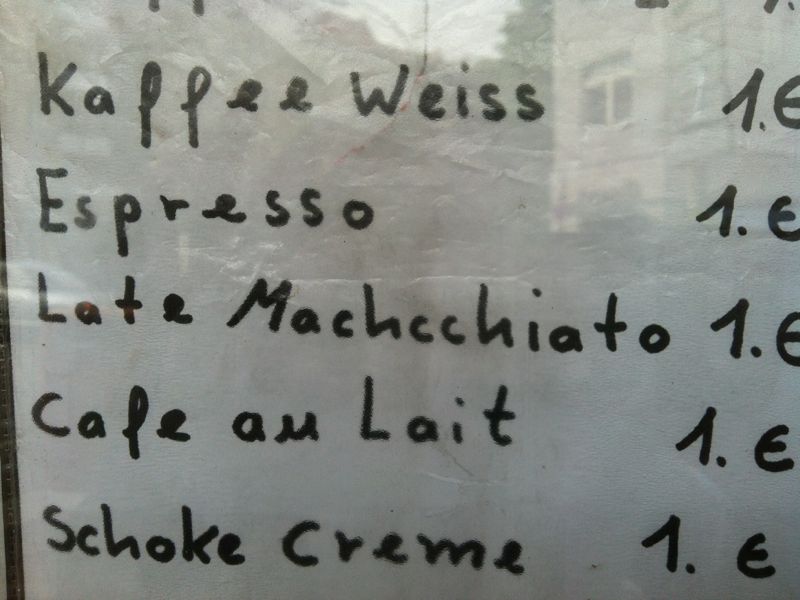 Kaffee Weiss 1.€
Espresso 1.€
Late Machcchiato 1.€
Cafe au Lait 1.€
Schoke Creme 1.€